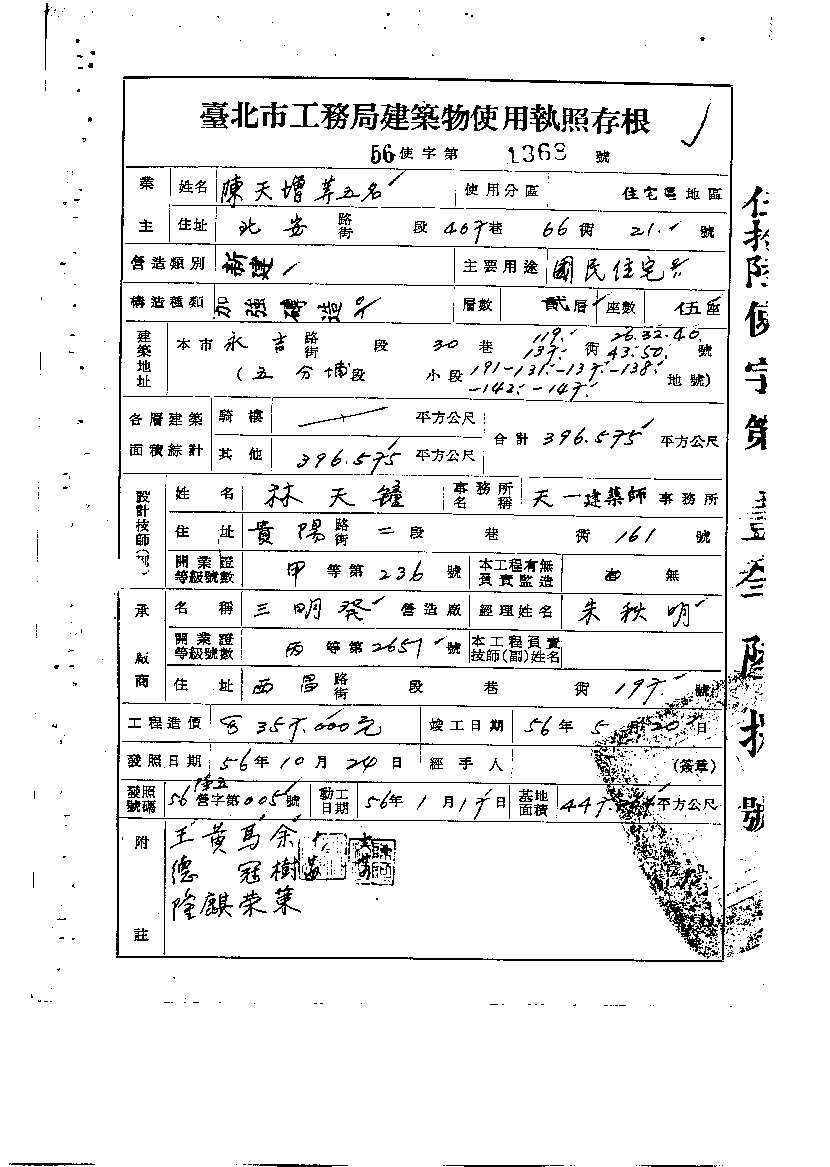 臺北市工務局建築物使用執照存根
56使字第 1368 號
業主 姓名 陳天增等五名 使用分區 住宅區地區
住址 北安 路街 段 407巷 66衖 21. 號
營造類別 新建 主要用途 國民住宅
構造種類 加強磚造 層數 貳層 座數 伍座
建築地址 本市 永吉 路街 段 30 巷 119. 137. 衖 26.32.40. 43.50. 號
(五分埔段 小段 191-131.-137.-138. -142.-147. 地號)
各層建築面積綜計 騎樓 平方公尺 合計 396.575 平方公尺
其他 396.575 平方公尺
設計技師 姓名 林天鐘 事務所名稱 天一建築師 事務所
住址 貴陽 路街 二段 巷 衖 161 號
開業證等級號數 甲 等第 236 號 本工程有無負責監造 無
承廠商 名稱 三明 營造廠 經理姓名 朱秋明
開業證等級號數 丙 等第 2657 號 本工程負責技師(副)姓名
住址 西昌 路街 段 巷 衖 197. 號
工程造價 357.000元 竣工日期 56年 5月 20日
發照日期 56年 10月 24日 經手人 (簽章)
發照號碼 56 營字第005號 動工日期 56年 1月 17日 基地面積 平方公尺
附註 王德隆 黃麒 馬冠荣 余樹葉
伍拾陸使字第壹叁陸捌號